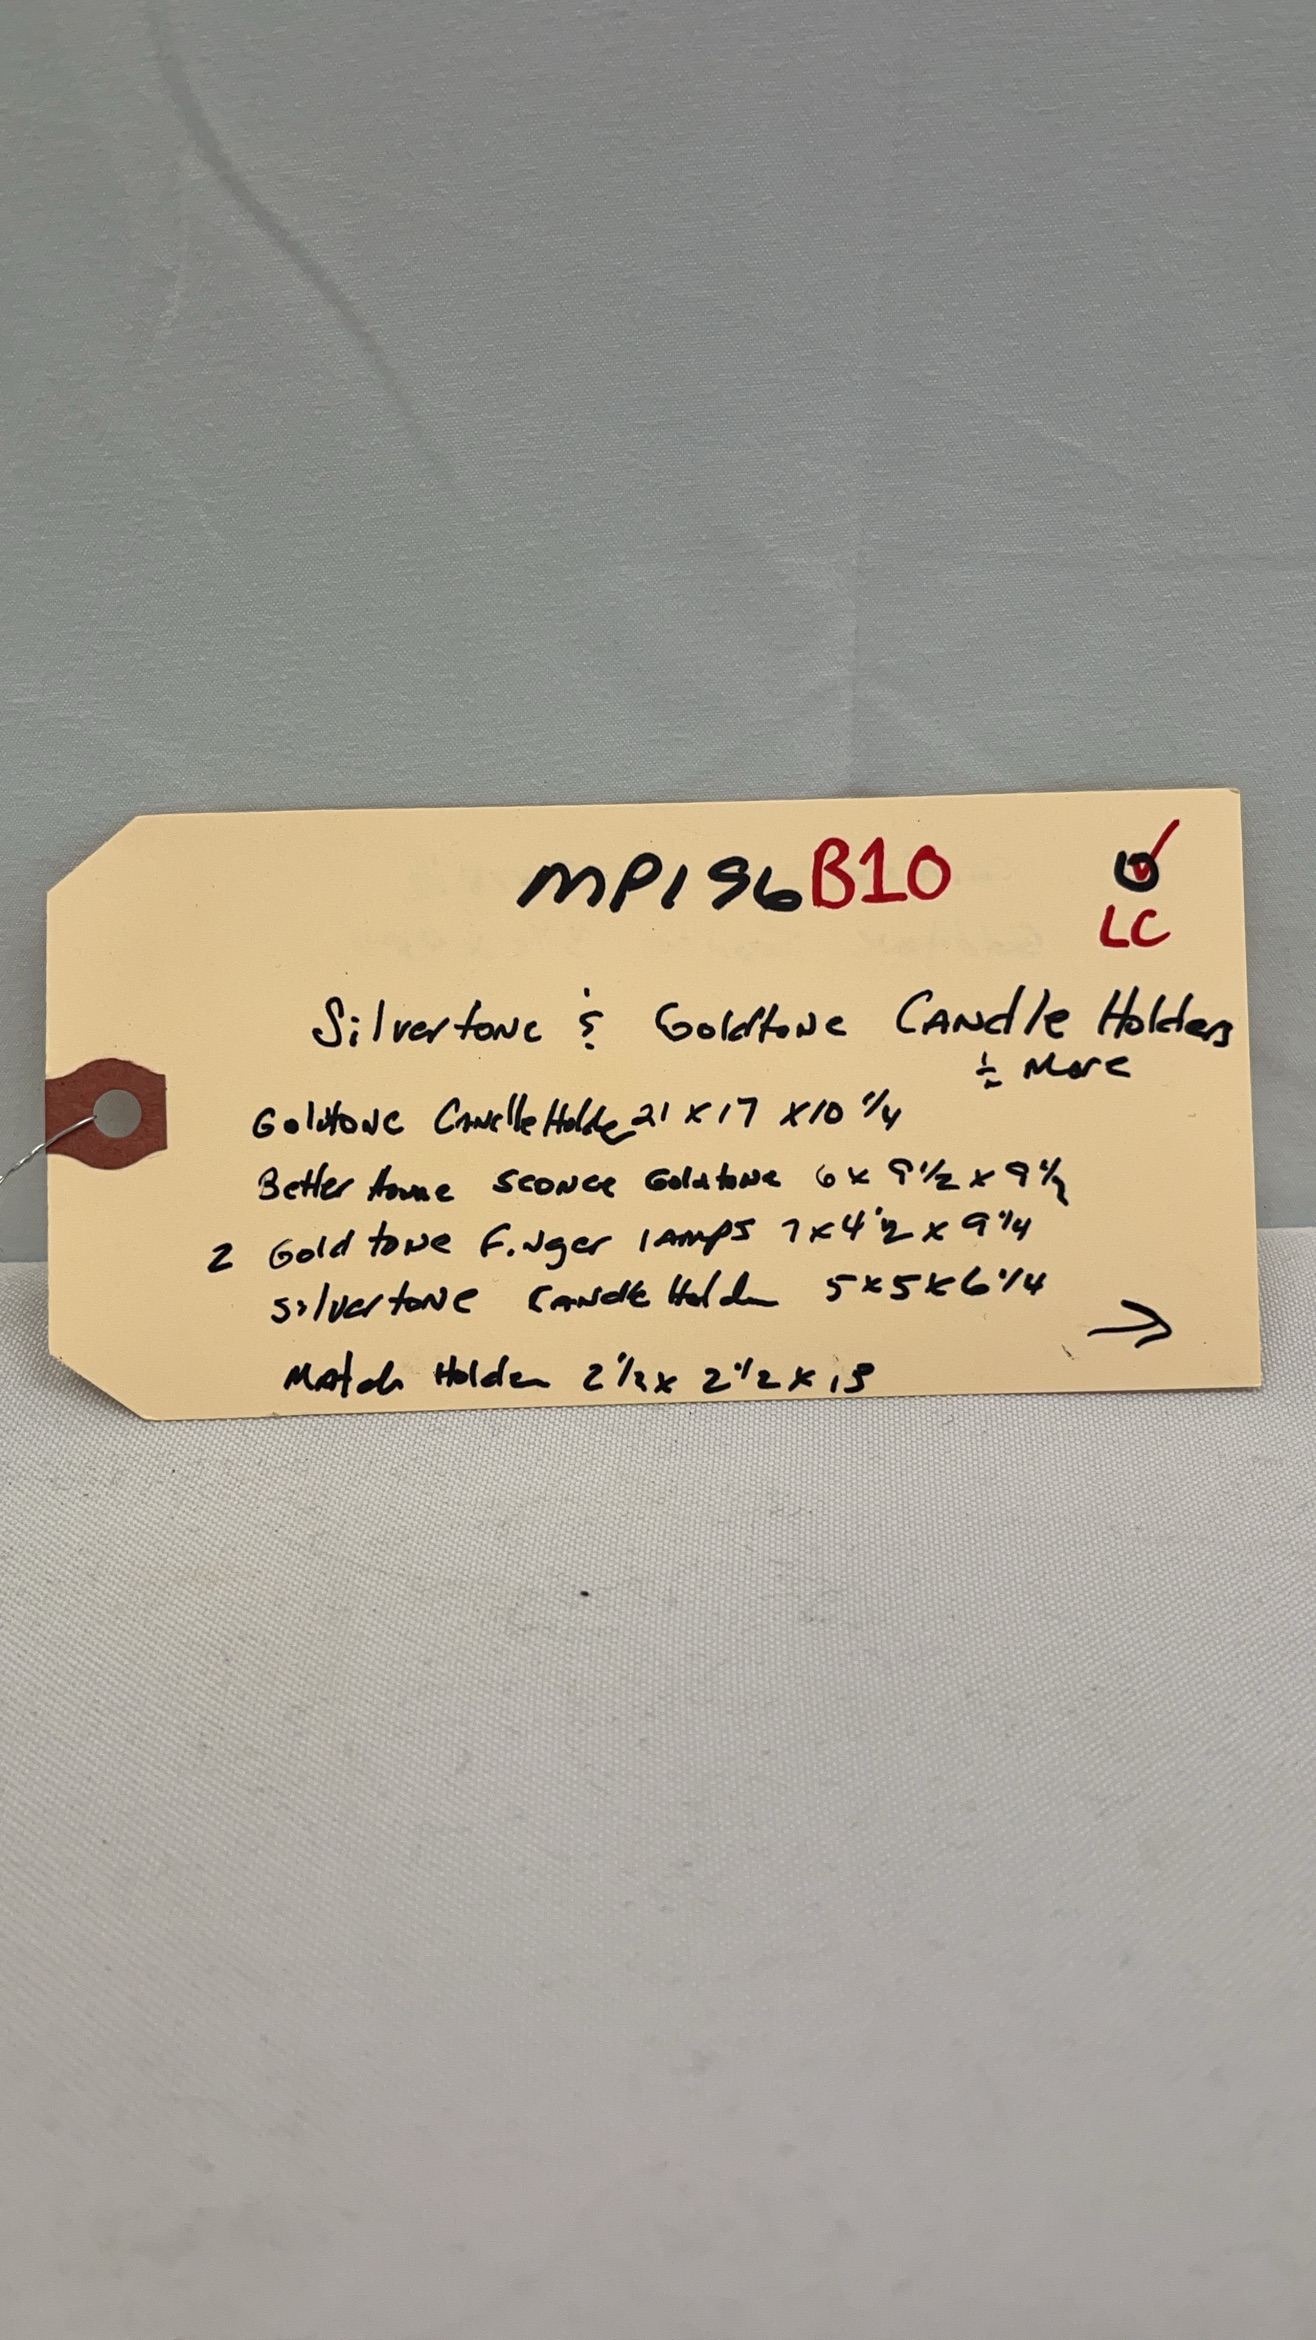 MP196B10
LC
Silvertone & Goldtone Candle Holders
& More
Goldtone Candle Holder 21 x 17 x 10 1/4
Better Home Sconce Goldtone 6 x 9 1/2 x 9 1/2
2 Goldtone Finger lamps 7 x 4 1/2 x 9 1/4
Silvertone Candle Holder 5 x 5 x 6 1/4
Match Holder 2 1/2 x 2 1/2 x
→